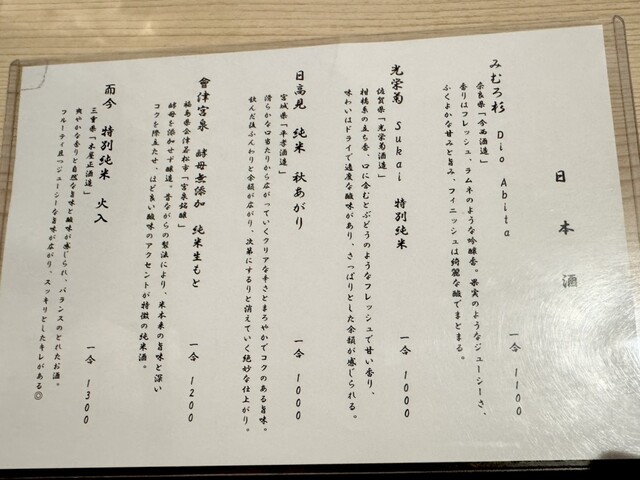 日本酒
みむろ杉 Dio Abita 一合 1100
奈良県「今西酒造」
香りはフレッシュ、ラムネのような吟醸香。果実のようなジューシーさ、
ふくよかな甘みと旨み、フィニッシュは綺麗な酸でまとまる。
光栄菊 Sukai 特別純米 一合 1000
佐賀県「光栄菊酒造」
柑橘系の立ち香、口に含むとぶどうのようなフレッシュで甘い香り、
味わいはドライで適度な酸味があり、さっぱりとした余韻が感じられる。
日高見 純米 秋あがり 一合 1000
宮城県「平孝酒造」
滑らかな口当たりから広がっていくクリアな辛さとまろやかでコクのある旨味。
飲んだ後ふんわりと余韻が広がり、次第にするりと消えていく絶妙な仕上がり。
會津宮泉 酵母無添加 純米生もと 一合 1200
福島県会津若松市「宮泉銘醸」
酵母を添加せず醸造。昔ながらの製法により、米本来の旨味と深い
コクを際立たせ、ほど良い酸味のアクセントが特徴の純米酒。
而今 特別純米 火入 一合 1300
三重県「木屋正酒造」
爽やかな香りと自然な旨味と酸味が感じられ、バランスのとれたお酒。
フルーティ且つジューシーな旨味が広がり、スッキリとしたキレがある◎